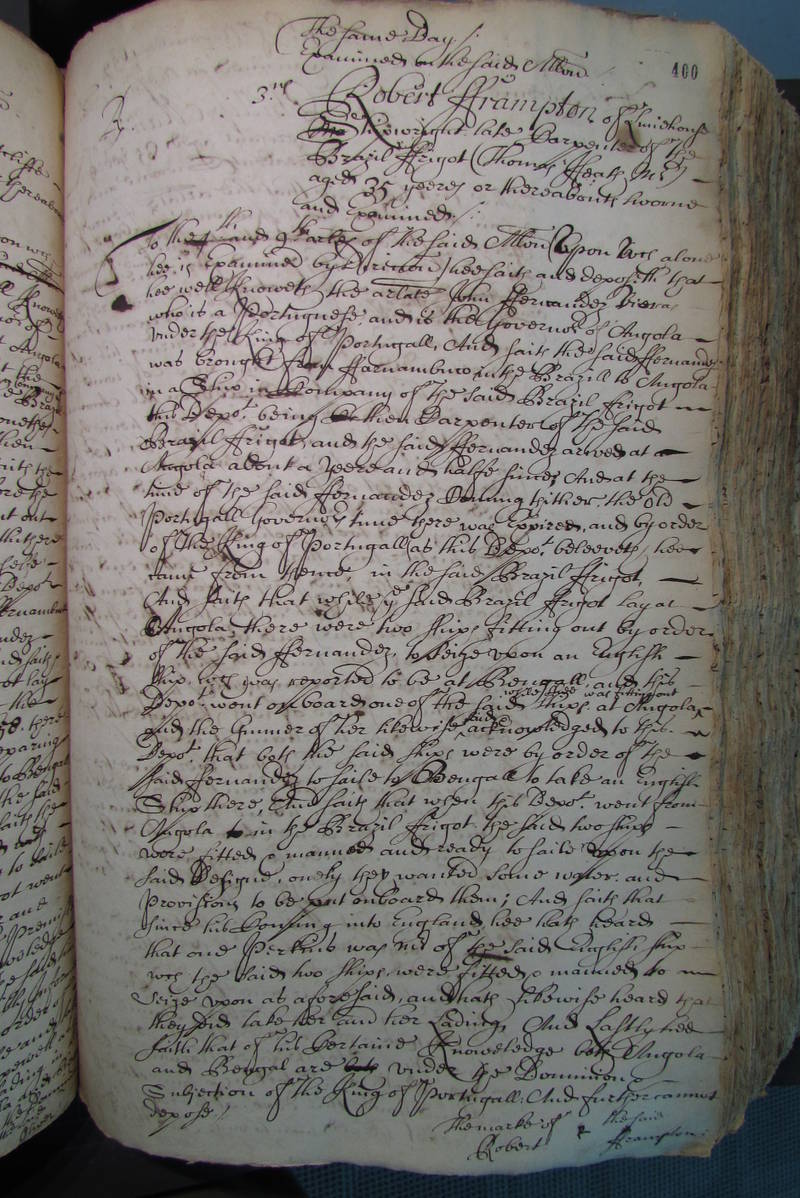 The same Day./:
Examined on the said Allon
400
3.us Robert Frampton of Limehouse
Shipwright late Carpenter of the
Brazil Frigot (Thomas Heath Mr)
aged 35 yeeres or thereabouts sworne
and Examined./:
To the and 9th arles of the said Allon (upon wch alone
hee is Examined by direccon) hee saith and deposeth that
hee well knoweth the arlate John Fernandez Viera
who is a Portuguese, and is the Governor of Angola
under the King of Portugall, And saith the said Fernandez
was brought from Farnambuco in the Brazill to Angola
in a Ship in Company of the said Brazil frigot
this Depot. being then Carpenter of the said
Brazil frigot, and the said Fernandez arived at
Angola about a yeere and halfe since, And at the
time of the said Fernandez Comming thither, the old
Portugall Governors time there was Expired, and by order
of the King of Portugall (as this Depot. beleeveth) hee
came from thence, in the said Brazil frigot,
And saith that while ye said Brazil frigot lay at
Angola there were two ships fitting out by order
of the said Fernandez, to seize upon an English
ship, wch was reported to be at Bengall, and this
Depot. went onboard one of the said ships at Angola,
while shee was fitting out
and the Gunner of her likewise acknowledged to this
Depot. that both the said ships were by order of the
said Fernandez to saile to Bengall to take an English
Ship there, And saith that when this Depot. went from
Angola in the Brazil frigot the said two ships
were fitted & manned and ready to saile upon the
said Designe, onely they wanted some water and
Provisions to be put onboard them; And saith that
since his Comming into England hee hath heard
that one Perkins was Mr of the said English ship
wch the said two ships were fitted & manned to
seize upon as aforesaid, and hath likewise heard that
they did take her and her Lading, And Lastly hee
saith that of his Certaine Knoweledge both Angola
and Bengal are under the Dominion &
Subjection of the King of Portugall. And further cannot
depose./
The marke of the said
Robert Frampton: